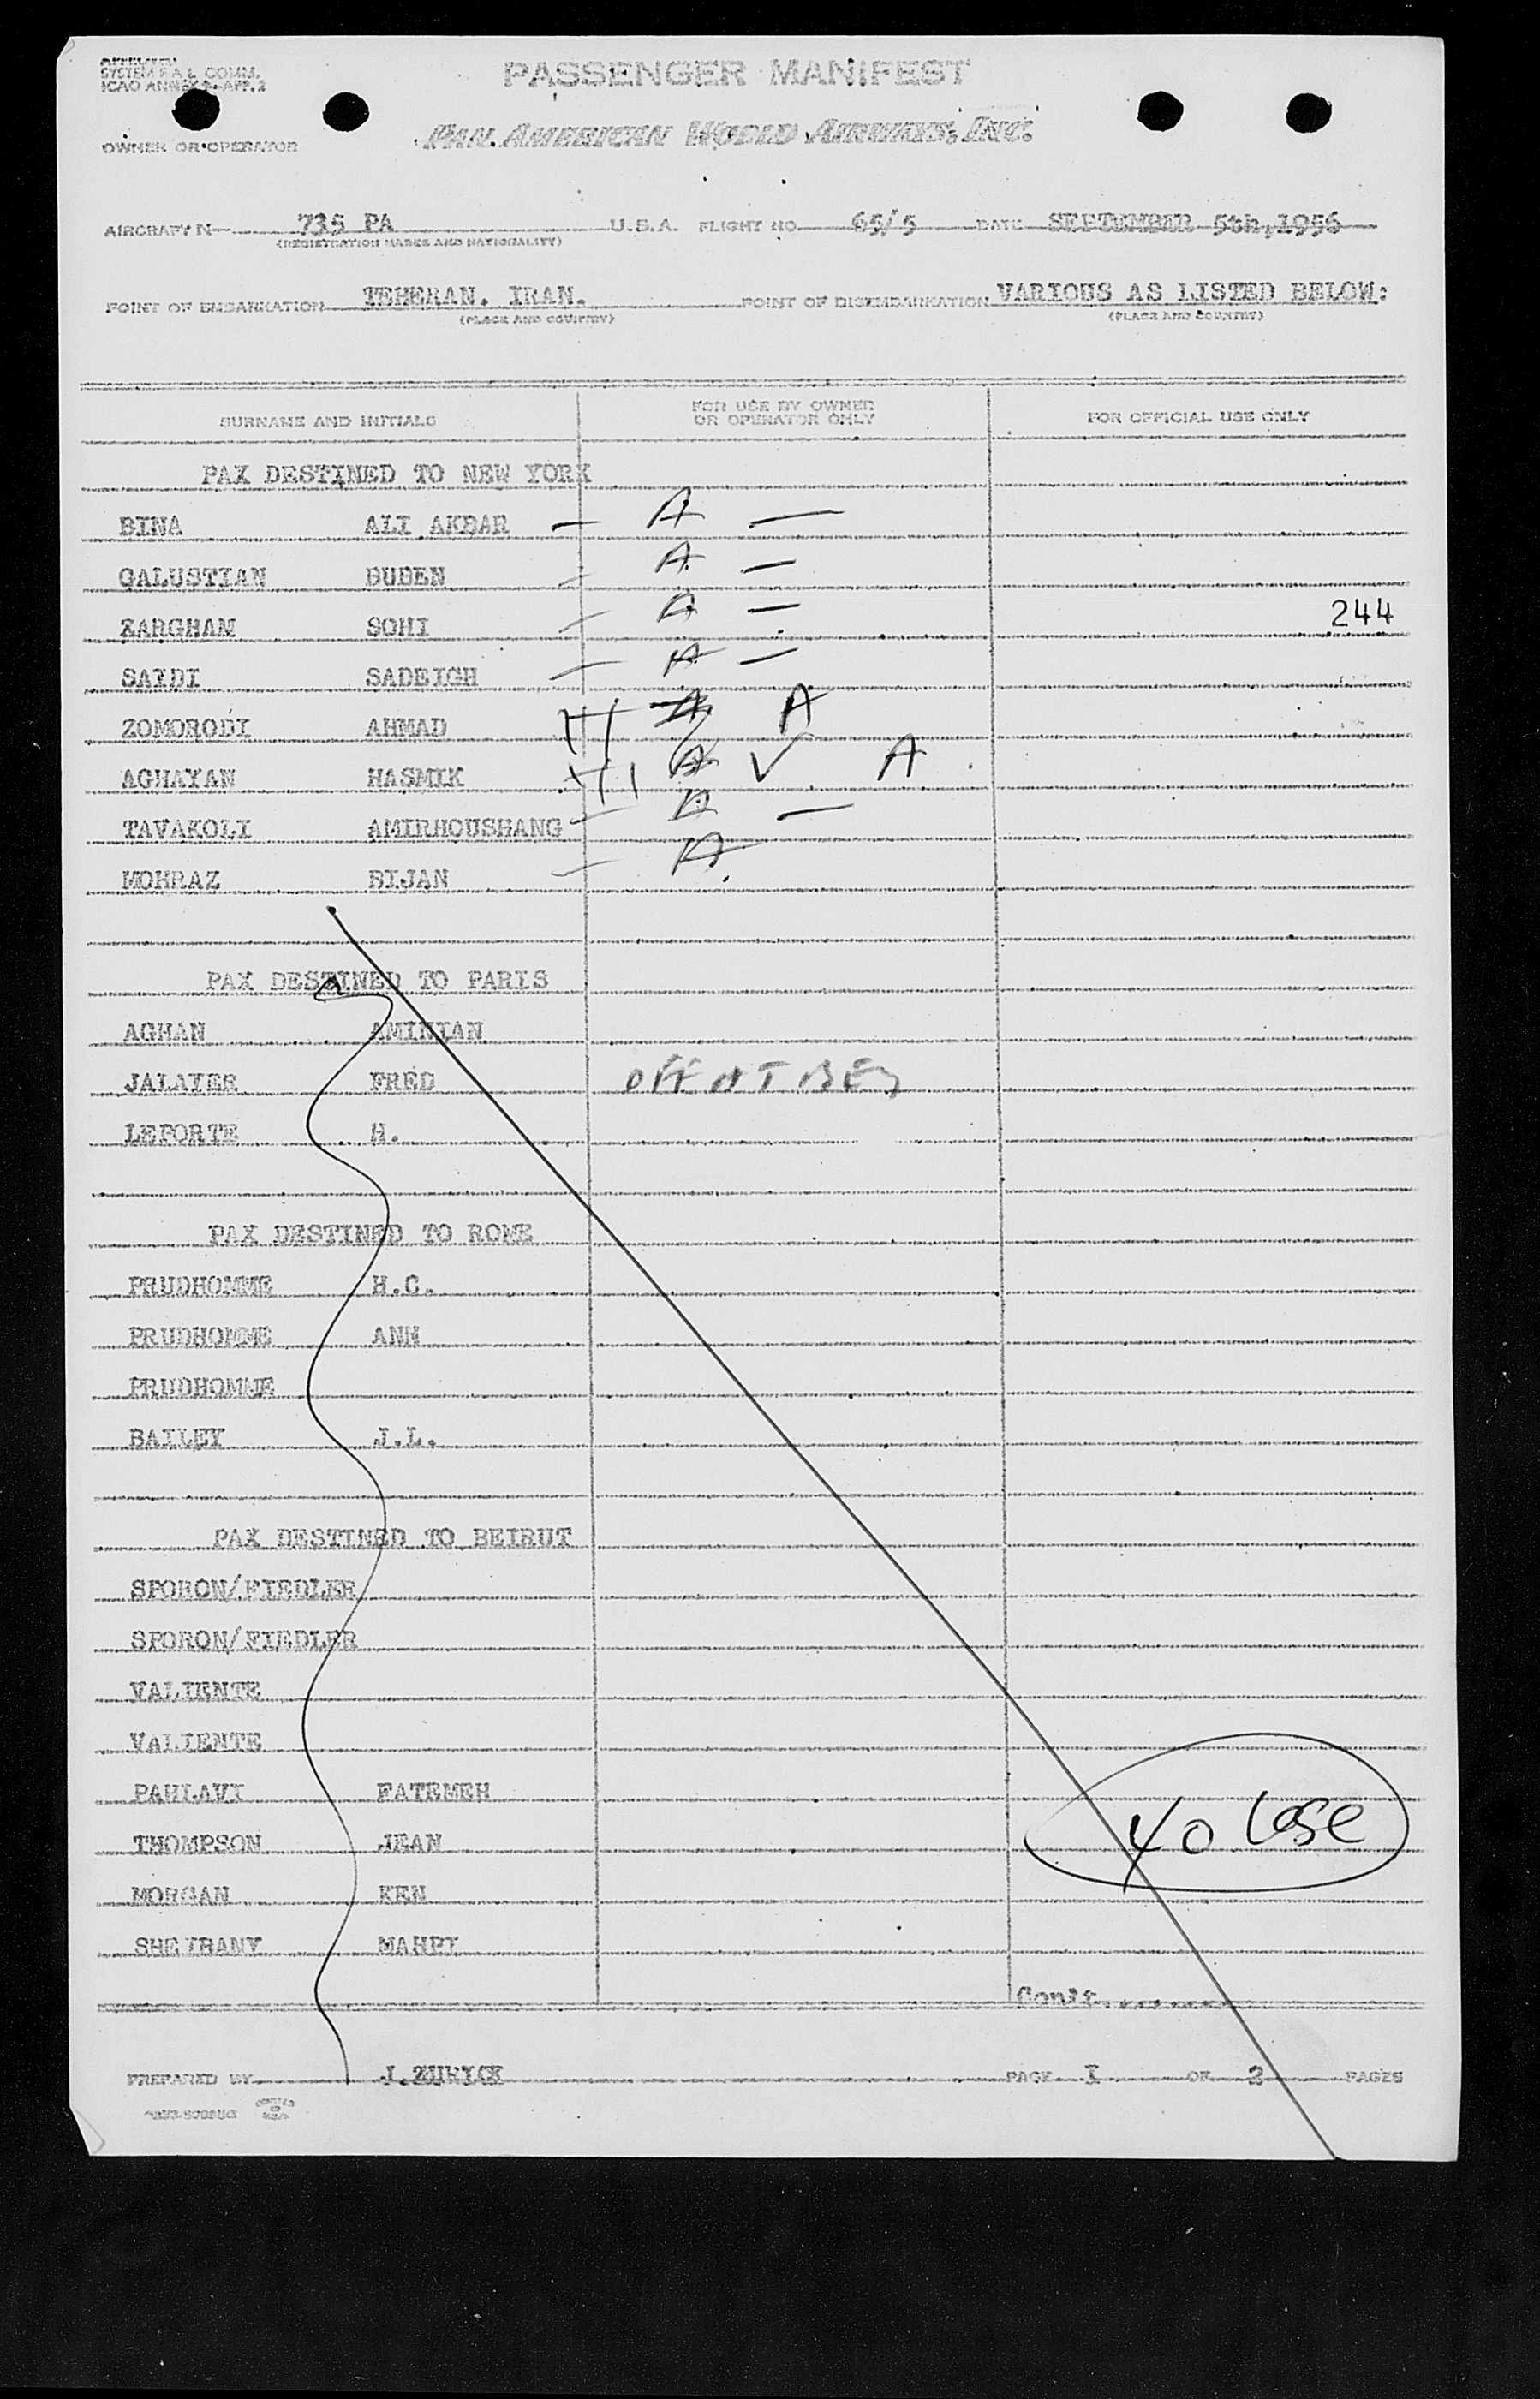 APPROVED
SYSTEM F.A.L. COMM.
ICAO ANNEX 9-APP. 2
PASSENGER MANIFEST
OWNER OR OPERATOR
PAN AMERICAN WORLD AIRWAYS, INC.
AIRCRAFT N 735 PA U.S.A. FLIGHT NO. 65/5 DATE SEPTEMBER 5th, 1956
(REGISTRATION MARKS AND NATIONALITY)
POINT OF EMBARKATION TEHERAN. IRAN. POINT OF DISEMBARKATION VARIOUS AS LISTED BELOW:
(PLACE AND COUNTRY) (PLACE AND COUNTRY)
SURNAME AND INITIALS FOR USE BY OWNER OR OPERATOR ONLY FOR OFFICIAL USE ONLY
PAX DESTINED TO NEW YORK
BINA ALI AKBAR — A —
GALUSTIAN BUBEN — A —
ZARGHAM SOHI — A — 244
SAIDI SADEIGH — A —
ZOMORODI AHMAD A A
AGHAYAN HASMIK A ✓ A
TAVAKOLI AMIRHOUSHANG — A —
MOHRAZ BIJAN — A
PAX DESTINED TO PARIS
AGHAN AMINIAN
JALAYER FRED OFF AT BEY
LEPORTE H.
PAX DESTINED TO ROME
PRUDHOMME H.C.
PRUDHOMME ANN
PRUDHOMME
BAILEY J.L.
PAX DESTINED TO BEIRUT
SPORON/FIEDLER
SPORON/FIEDLER
VALIENTE
VALIENTE
PAHLAVI FATEMEH
THOMPSON JEAN
MORGAN KEN
SHEIBANY MAHDI
Cont.
PREPARED BY PAGE I OF 2 PAGES